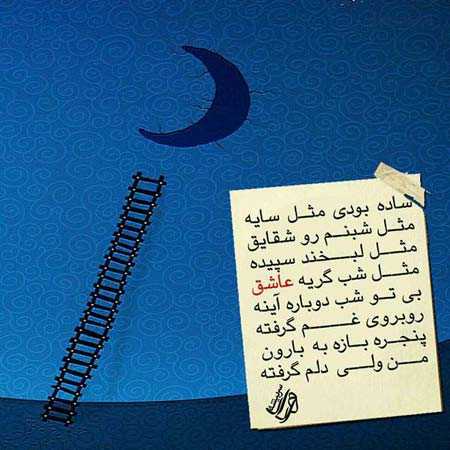 ساده بودی مثل سایه
مثل شبنم رو شقایق
مثل لبخند سپیده
مثل شب گریه عاشق
بی تو شب دوباره آینه
روبروی غم گرفته
پنجره بازه به بارون
من ولی دلم گرفته